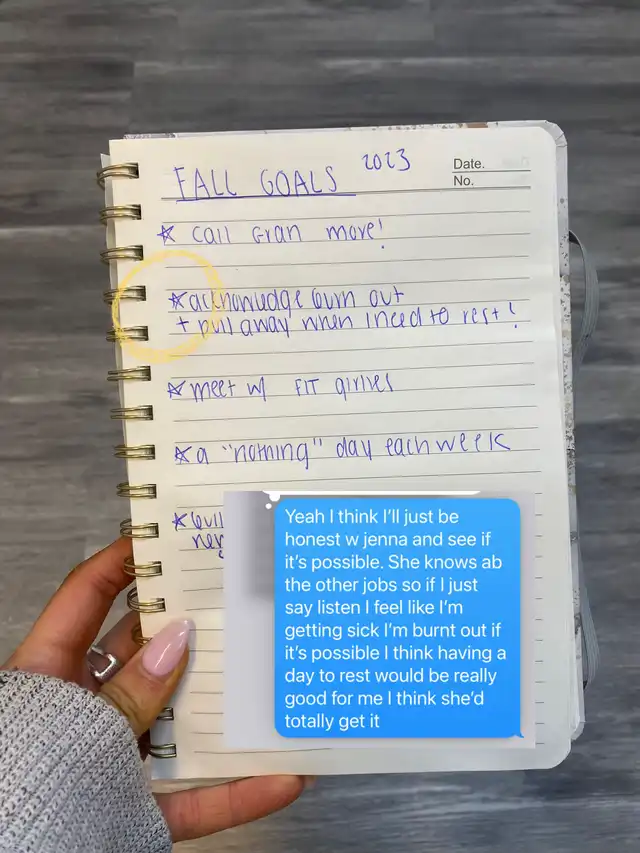 FALL GOALS 2023
Date.
No.
☆ call Gran more!
☆ acknowledge burn out
+ pull away when I need to rest!
☆ meet w/ FIT girlies
☆ a "nothing" day each week
☆
Yeah I think I'll just be
honest w jenna and see if
it's possible. She knows ab
the other jobs so if I just
say listen I feel like I'm
getting sick I'm burnt out if
it's possible I think having a
day to rest would be really
good for me I think she'd
totally get it